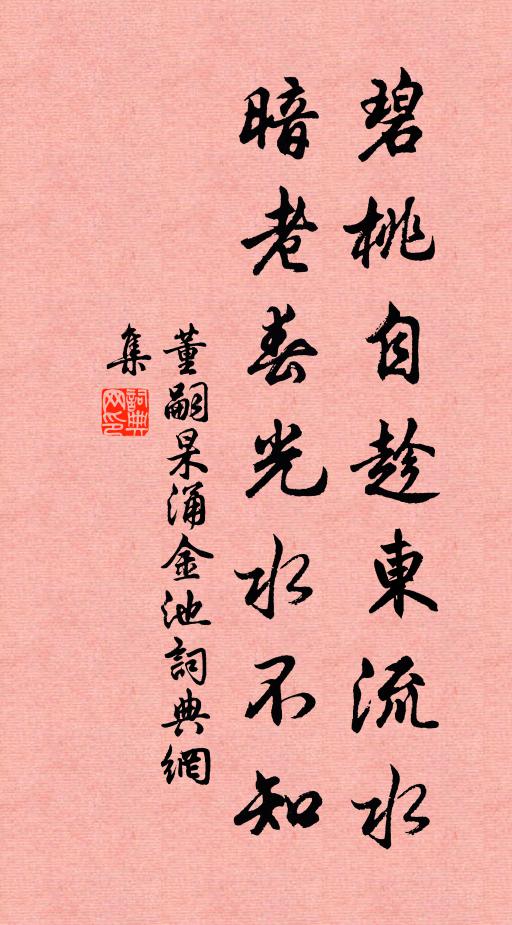 碧桃自趁東流水
暗老春光水不知
董嗣杲涌金池詞典網
集
詞典網印